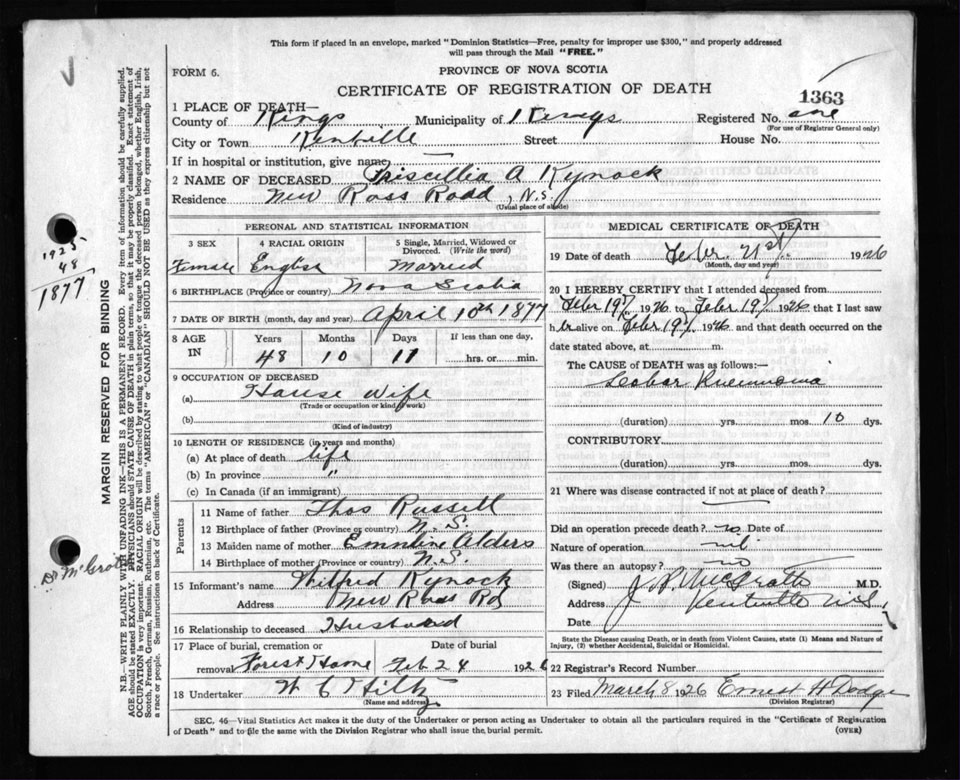 This form if placed in an envelope, marked "Dominion Statistics—Free, penalty for improper use $300," and properly addressed
will pass through the Mail "FREE."
FORM 6.
PROVINCE OF NOVA SCOTIA
CERTIFICATE OF REGISTRATION OF DEATH
1363
1 PLACE OF DEATH—
County of Kings Municipality of Kings Registered No. one
(For use of Registrar General only)
City or Town Kentville Street House No.
If in hospital or institution, give name —
2 NAME OF DECEASED Priscillia A Kynock
Residence New Ross Road, N.S.
(Usual place of abode)
PERSONAL AND STATISTICAL INFORMATION
3 SEX 4 RACIAL ORIGIN 5 Single, Married, Widowed or
Divorced. (Write the word)
Female English Married
6 BIRTHPLACE (Province or country) Nova Scotia
7 DATE OF BIRTH (month, day and year) April 10th 1877
8 AGE IN Years Months Days If less than one day,
48 10 11 hrs. or min.
9 OCCUPATION OF DECEASED
(a) House Wife
(Trade or occupation or kind of work)
(b)
(Kind of industry)
10 LENGTH OF RESIDENCE (in years and months)
(a) At place of death life
(b) In province "
(c) In Canada (if an immigrant)
Parents
11 Name of father Thos Russell
12 Birthplace of father (Province or country) N.S.
13 Maiden name of mother Emmline Alders
14 Birthplace of mother (Province or country) N.S.
15 Informant's name Wilfred Kynock
Address New Ross Rd
16 Relationship to deceased Husband
17 Place of burial, cremation or Date of burial
removal Forest Home Feb 24 1926
18 Undertaker W C Hiltz
(Name and address)
MEDICAL CERTIFICATE OF DEATH
19 Date of death Febr. 21st 1926
(Month, day and year)
20 I HEREBY CERTIFY that I attended deceased from
Febr 19th 1926 to Febr 19th 1926 that I last saw
her alive on Febr 19th 1926 and that death occurred on the
date stated above, at m.
The CAUSE OF DEATH was as follows:—
Leobar Pneumonia
(duration) yrs. mos. 10 dys.
CONTRIBUTORY
(duration) yrs. mos. dys.
21 Where was disease contracted if not at place of death?
—
Did an operation precede death? no Date of
Nature of operation nil
Was there an autopsy? no
(Signed) J. P. McGrath M.D.
Address Kentville N.S.
Date
State the Disease causing Death, or in death from Violent Causes, state (1) Means and Nature of
Injury, (2) whether Accidental, Suicidal or Homicidal.
22 Registrar's Record Number
23 Filed March 8 1926 Ernest H Dodge
(Division Registrar)
SEC. 46—Vital Statistics Act makes it the duty of the Undertaker or person acting as Undertaker to obtain all the particulars required in the "Certificate of Registration
of Death" and to file the same with the Division Registrar who shall issue the burial permit.
(OVER)
1925
48
1877
Dr McGrath
MARGIN RESERVED FOR BINDING
N.B.—WRITE PLAINLY WITH UNFADING INK—THIS IS A PERMANENT RECORD. Every item of information should be carefully supplied.
AGE should be stated EXACTLY. PHYSICIANS should STATE CAUSE OF DEATH in plain terms, so that it may be properly classified. Exact statement of
OCCUPATION is very important. RACIAL ORIGIN will be described by stating to what people or tongue the deceased person belonged, whether English, Irish,
Scotch, French, German, Russian, Ruthenian, etc. The terms "AMERICAN" or "CANADIAN" SHOULD NOT BE USED as they express citizenship but not
a race or people. See instructions on back of Certificate.